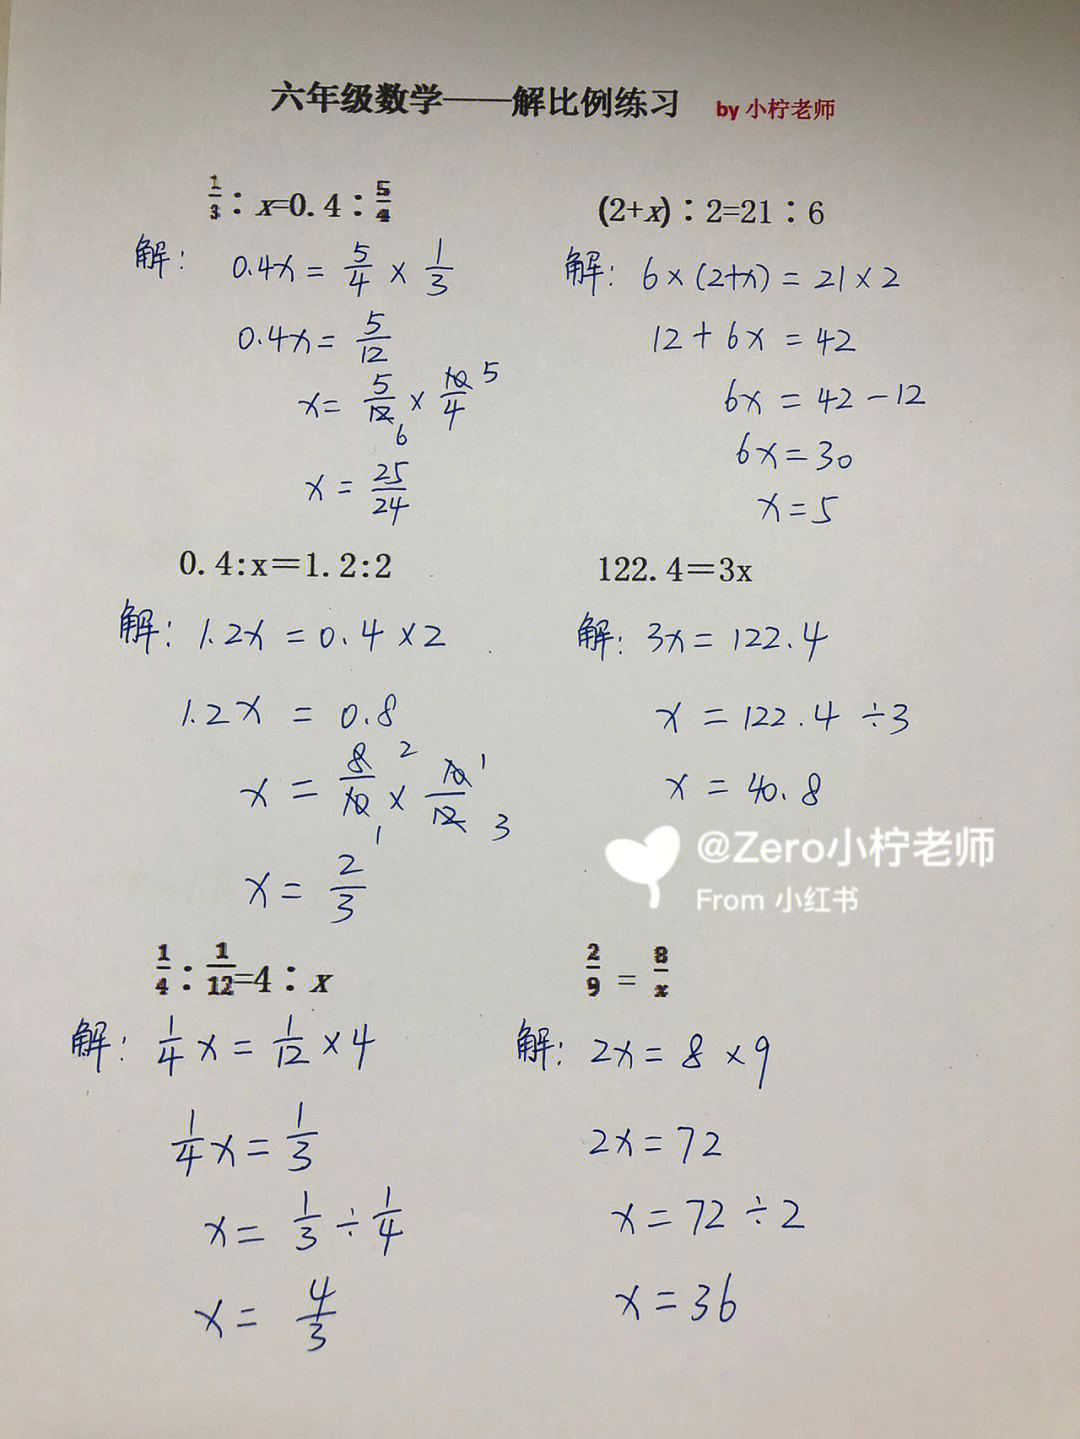 六年级数学——解比例练习 by 小柠老师
1/3：x=0.4：5/4
解： 0.4x = 5/4 × 1/3
0.4x = 5/12
x = 5/12 × 10/4 5
6
x = 25/24
(2+x)：2=21：6
解： 6×(2+x) = 21×2
12 + 6x = 42
6x = 42 - 12
6x = 30
x = 5
0.4:x=1.2:2
解： 1.2x = 0.4 × 2
1.2x = 0.8
x = 8/10 2 × 10/12 1
1 3
x = 2/3
122.4=3x
解： 3x = 122.4
x = 122.4 ÷ 3
x = 40.8
@Zero小柠老师
From 小红书
1/4：1/12=4：x
解： 1/4 x = 1/12 × 4
1/4 x = 1/3
x = 1/3 ÷ 1/4
x = 4/3
2/9 = 8/x
解： 2x = 8 × 9
2x = 72
x = 72 ÷ 2
x = 36